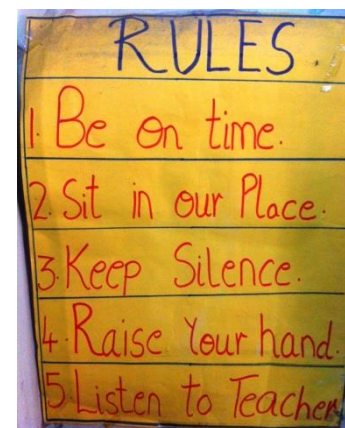 RULES.
1. Be on time.
2. Sit in our Place.
3. Keep Silence.
4. Raise Your hand.
5 Listen to Teacher